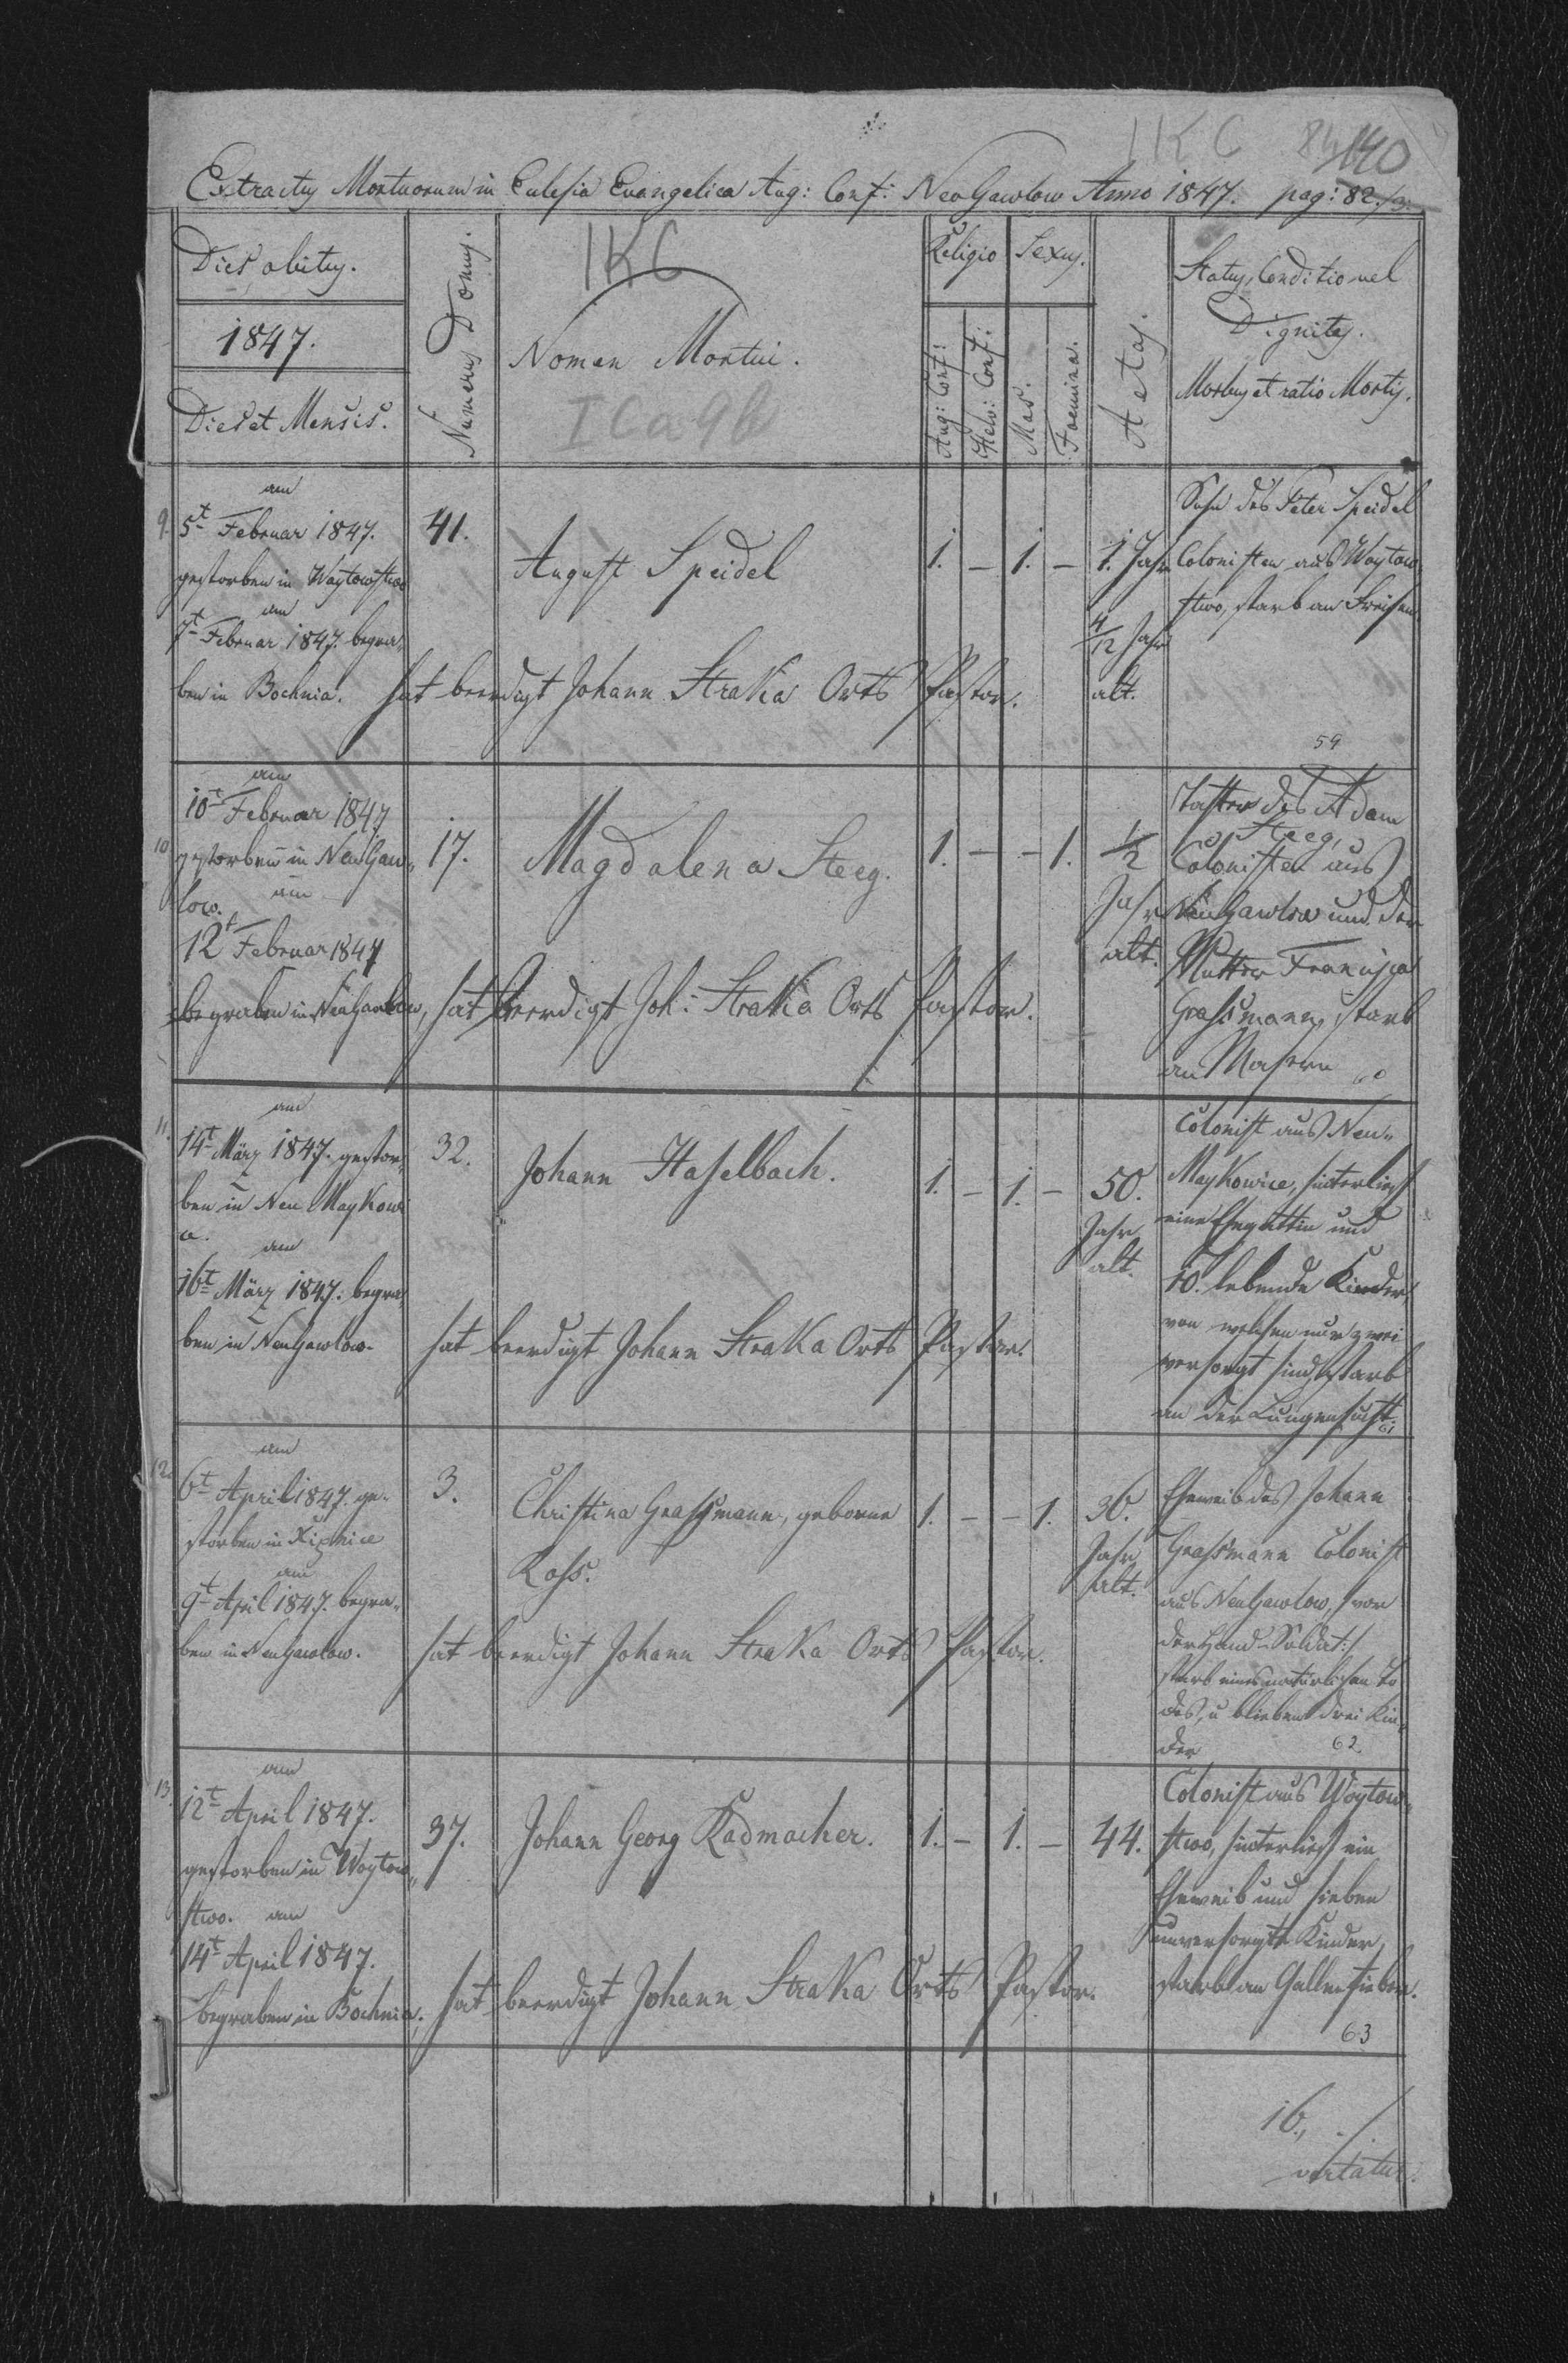 IKC 84 140
Extractus Mortuorum in Eclesia Evangelica Aug: Conf: NeoGawlow Anno 1847. pag: 82./3.
Dies obitus.
1847.
Dies et Mensis.
Numerus Domus.
IKC
Nomen Mortui.
I C a 9 b
Religio
Aug: Conf:
Helv: Conf:
Sexus.
Mas.
Foemina.
Aetas.
Status, Conditio vel
Dignitas.
Morbus et ratio Mortis.
9. am
5t Februar 1847.
gestorben in Woytowstwo
am
7t Februar 1847. begra„
ben in Bochnia.
41.
August Speidel
1. – 1. –
1. Jahr
4/12 Jahr
alt.
Sohn des Peter Speidel
Colonisten aus Woytow
stwo, starb an Freisen.
hat beerdigt Johann Straka Orts Pastor.
59
10 am
10t Februar 1847
gestorben in NeuGaw„
low. am
12t Februar 1847
begraben in NeuGawlow,
17.
Magdalena Steeg.
1. – – 1.
1/2
Jahr
alt.
Tochter des Adam
Steeg,
Colonisten aus
NeuGawlow und der
Mutter Francisca
Grassmann, starb
an Masern
hat beerdigt Joh: Straka Orts Pastor.
11. am
14t März 1847. gestor„
ben in Neu Maykowi
ce. am
16t März 1847. begra„
ben in NeuGawlow.
32.
Johann Haselbach.
1. – 1. –
50.
Jahr
alt.
Colonist aus Neu„
Maykowice, hinterliess
eine Ehegattin und
10. lebende Kinder,
von welchen nur zwei
versorgt sind, starb
an der Lungensucht.
61
hat beerdigt Johann Straka Orts Pastor.
12. am
6t April 1847. ge„
storben in Xiąznice
am
9t April 1847. begra„
ben in NeuGawlow.
3.
Christina Grassmann, geborne
Koss.
1. – – 1.
36.
Jahr
alt.
Eheweib des Johann
Grassmann Colonist
aus NeuGawlow, /:von
der Hand-Soldat:/
starb eines natürlichen To
des, u blieben drei Kin„
der 62.
hat beerdigt Johann Straka Orts Pastor.
13. am
12t April 1847.
gestorben in Woytow„
stwo. am
14t April 1847.
begraben in Bochnia.
37.
Johann Georg Radmacher.
1. – 1. –
44.
Colonist aus Woytow„
stwo, hinterliess ein
Eheweib und sieben
unversorgte Kinder,
starb an Gallenfieber.
63
hat beerdigt Johann Straka Orts Pastor.
16. ./.
vertatur.